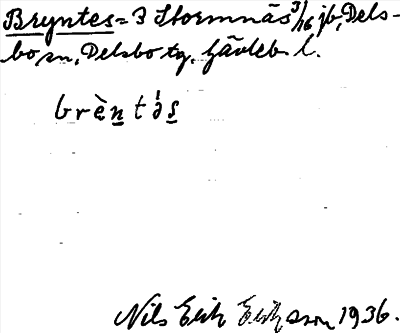 Bryntes = 3 Stormnäs 3/16 jb, Dels-
bo sn, Delsbo tg. Gävleb. l.
brèntə́s
Nils Erik Eriksson 1936.